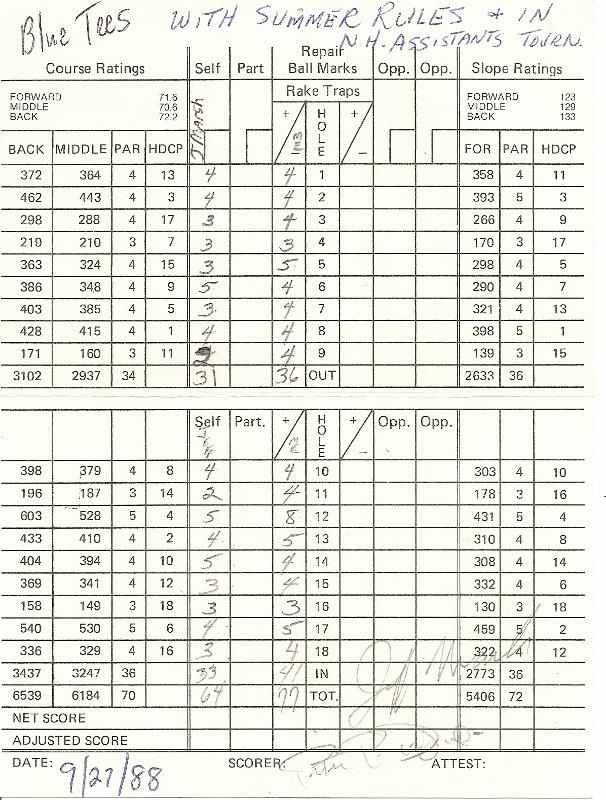 Blue Tees WITH SUMMER RULES & IN
N.H. ASSISTANTS TOURN.
Course Ratings Self Part Repair Ball Marks Opp. Opp. Slope Ratings
Rake Traps
FORWARD 71.6 FORWARD 123
MIDDLE 70.6 MIDDLE 129
BACK 72.2 BACK 133
J Marsh + me HOLE + −
BACK MIDDLE PAR HDCP FOR PAR HDCP
372 364 4 13 4 4 1 358 4 11
462 443 4 3 4 4 2 393 5 3
298 288 4 17 3 4 3 266 4 9
219 210 3 7 3 3 4 170 3 17
363 324 4 15 3 5 5 298 4 5
386 348 4 9 5 4 6 290 4 7
403 385 4 5 3 4 7 321 4 13
428 415 4 1 4 4 8 398 5 1
171 160 3 11 2 4 9 139 3 15
3102 2937 34 31 36 OUT 2633 36
Self Part. + HOLE + − Opp. Opp.
Jeff me
398 379 4 8 4 4 10 303 4 10
196 187 3 14 2 4 11 178 3 16
603 528 5 4 5 8 12 431 5 4
433 410 4 2 4 5 13 310 4 8
404 394 4 10 5 4 14 308 4 14
369 341 4 12 3 4 15 332 4 6
158 149 3 18 3 3 16 130 3 18
540 530 5 6 4 5 17 459 5 2
336 329 4 16 3 4 18 322 4 12
3437 3247 36 33 41 IN 2773 36
6539 6184 70 64 77 TOT. 5406 72
NET SCORE
ADJUSTED SCORE
DATE: 9/27/88 SCORER: ATTEST: